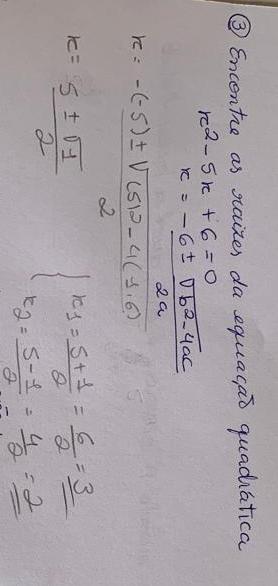 ③ Encontre as raizes da equação quadrática
x² - 5x + 6 = 0
x = -6 ± √b² - 4ac / 2a
x = -(-5) ± √(5)² - 4(1.6) / 2
x = 5 ± √1 / 2
x1 = 5+1 / 2 = 6 / 2 = 3
x2 = 5-1 / 2 = 4 / 2 = 2